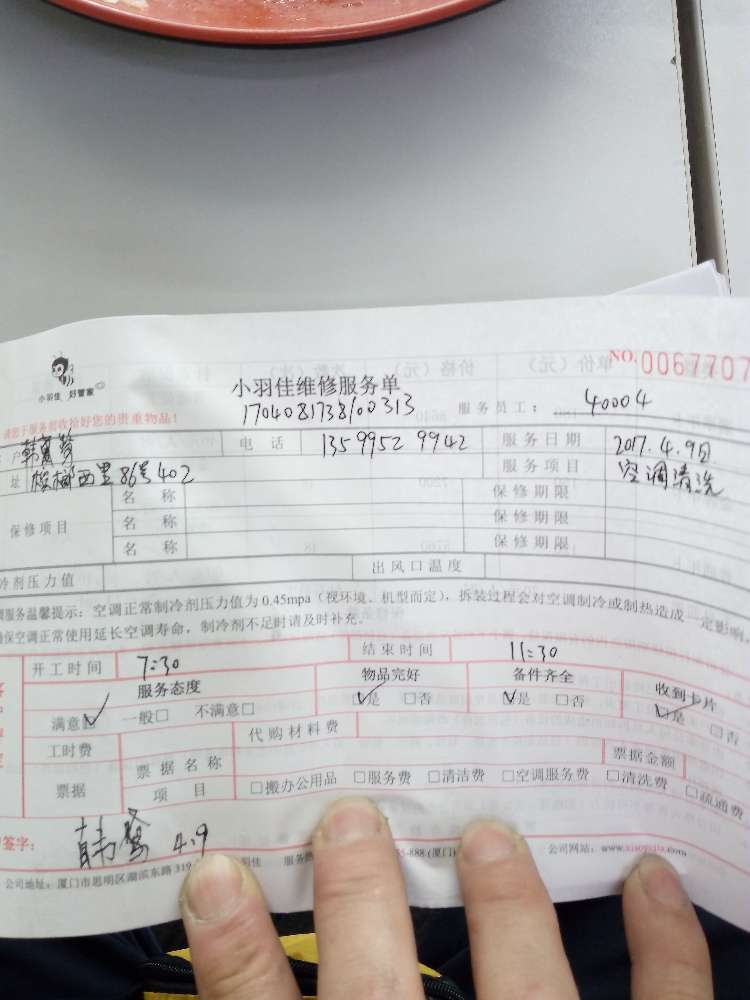 小羽佳 好管家
NO. 0067707
小羽佳维修服务单
1704081738100313 服务员工: 40004
请您于服务前收拾好您的贵重物品!
户 韩 电话 13599529942 服务日期 2017.4.9日
址 西里86号402 服务项目 空调清洗
保修项目 名称 保修期限
名称 保修期限
名称 保修期限
冷剂压力值 出风口温度
服务温馨提示: 空调正常制冷剂压力值为0.45mpa(视环境、机型而定), 拆装过程会对空调制冷或制热造成一定影响,
保空调正常使用延长空调寿命, 制冷剂不足时请及时补充。
开工时间 7:30 结束时间 11:30
服务态度 物品完好 备件齐全 收到卡片
满意☑ 一般□ 不满意□ ☑是 □否 ☑是 □否 ☑是 □否
工时费 代购材料费
票据 票据名称 票据金额
项目 □搬办公用品 □服务费 □清洁费 □空调服务费 □清洗费 □疏通费
签字: 韩 4.9
公司地址: 厦门市思明区湖滨东路319 羽佳 服务 -888(厦门 公司网站: www.xiaoyujia.com